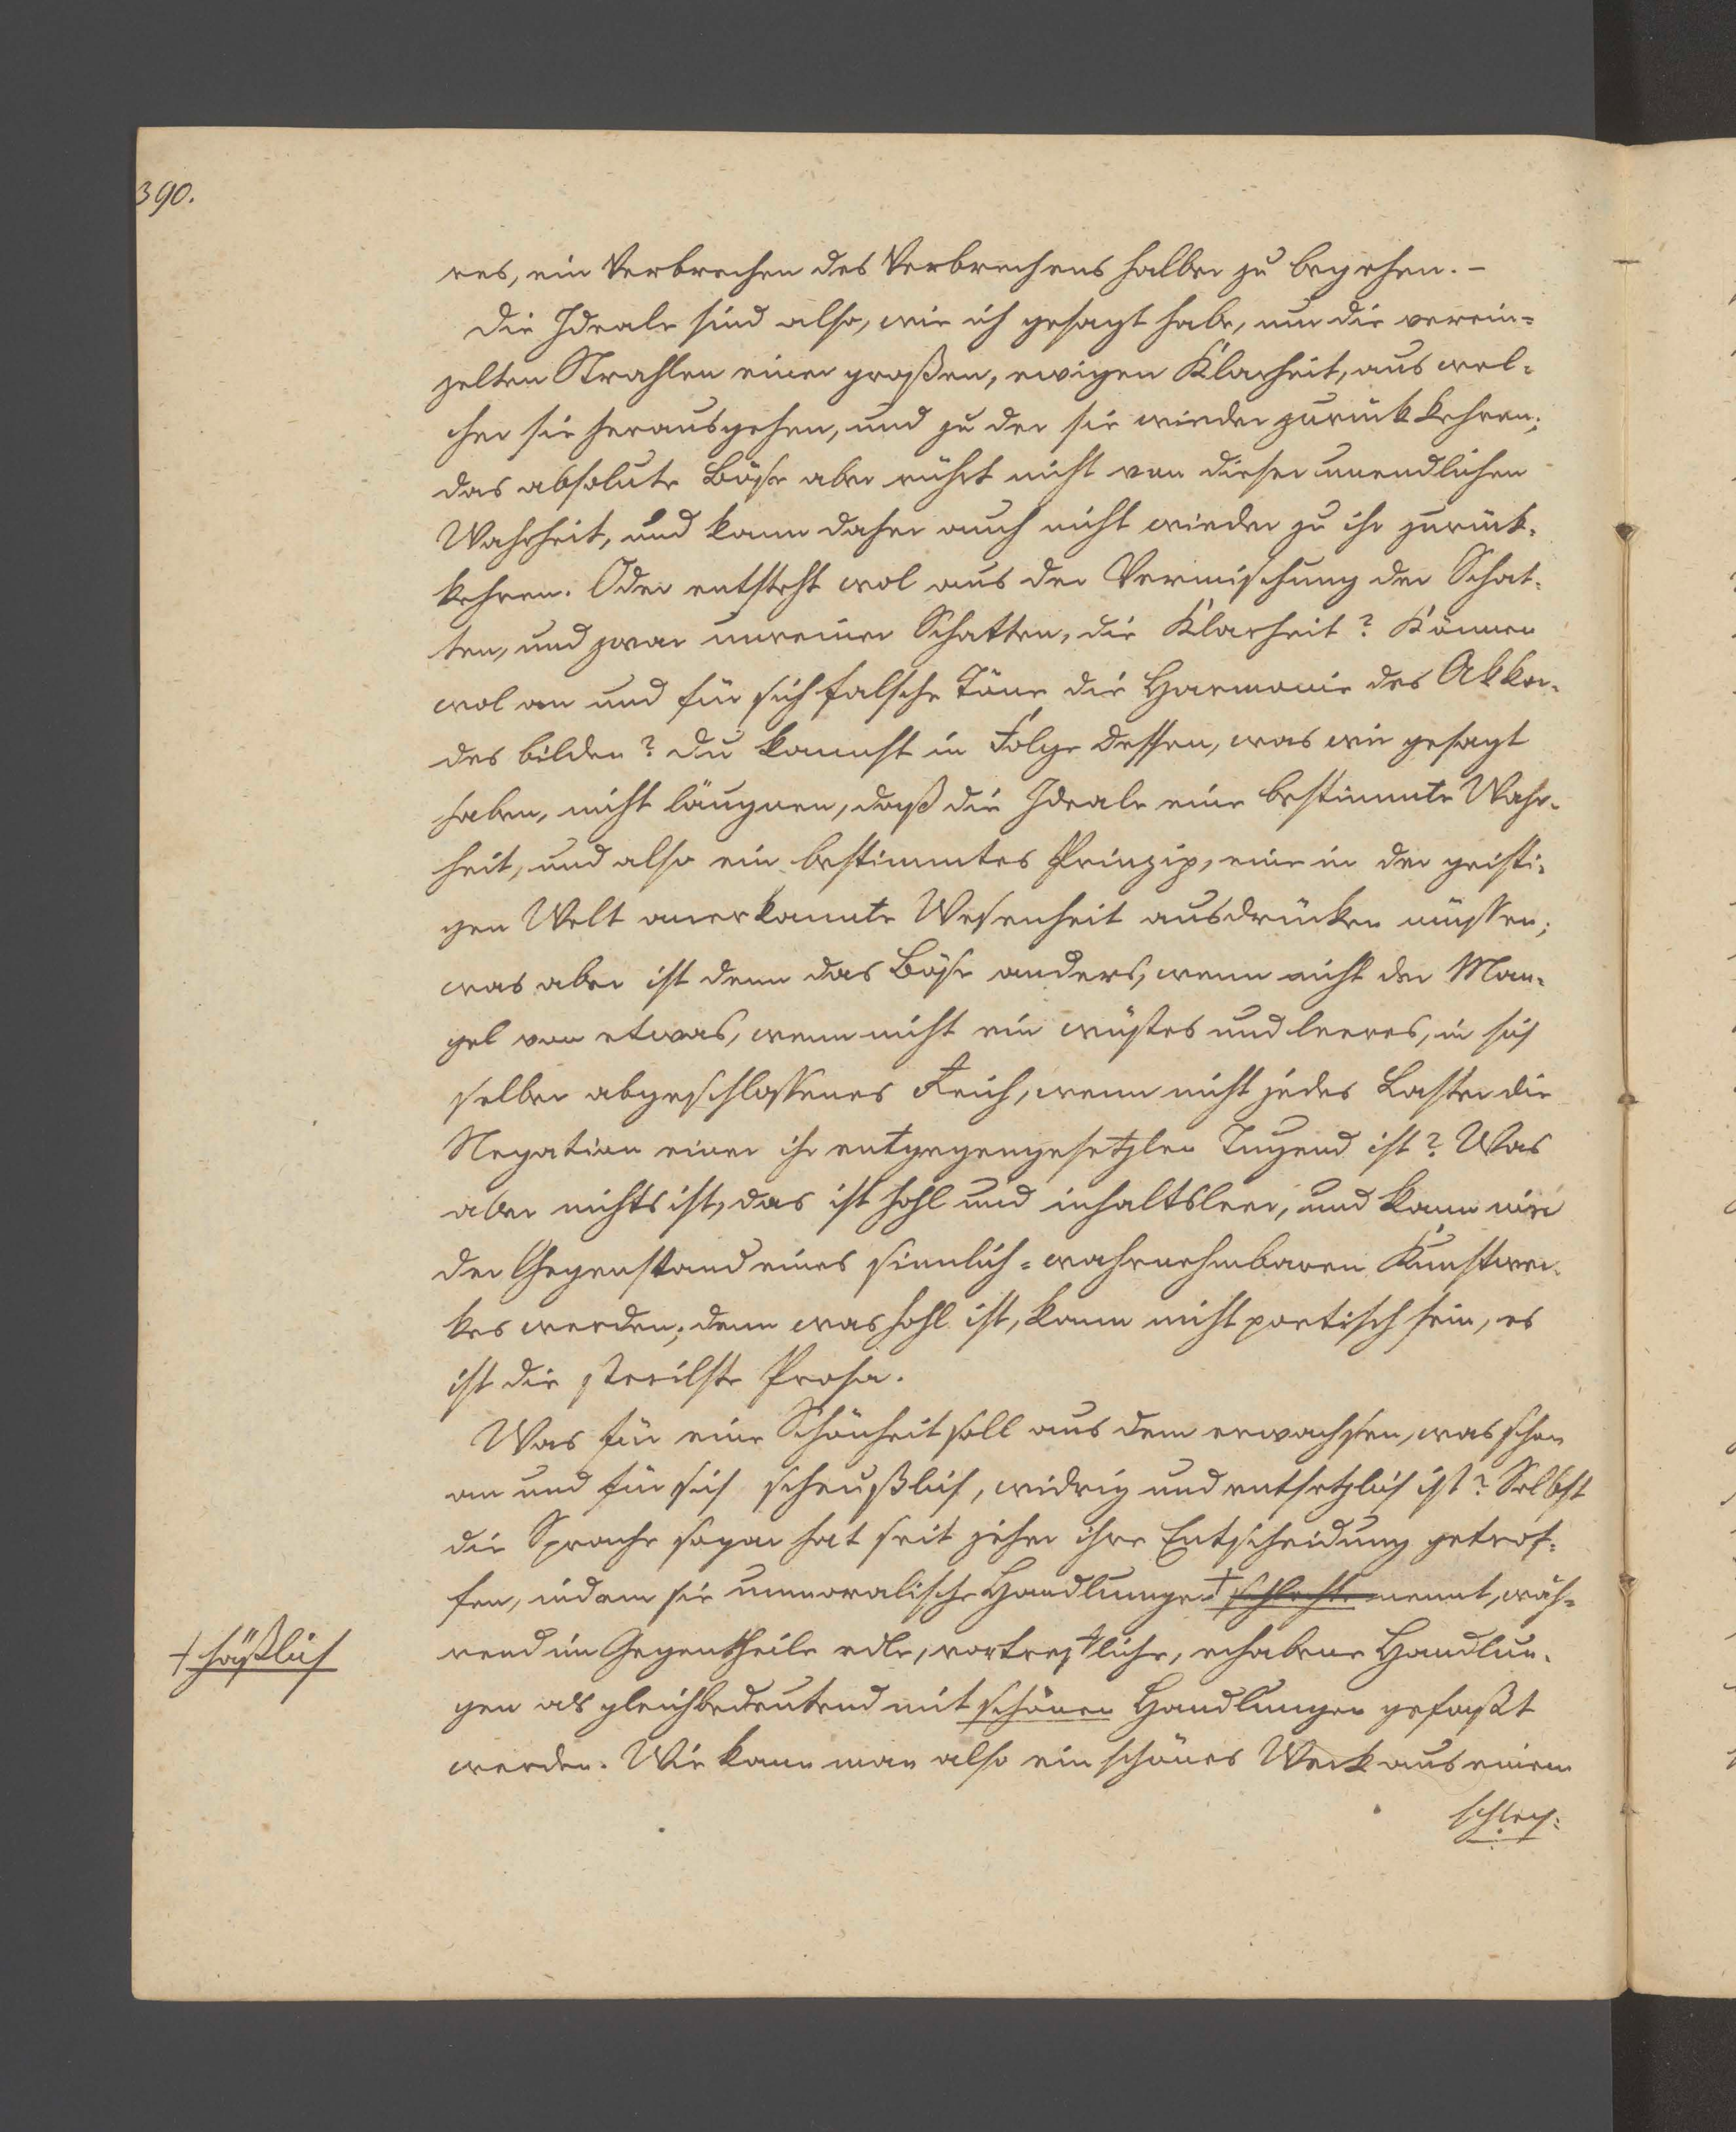 390.
res, ein Verbrechen des Verbrechens halber zu begehen. –
Die Ideale sind also, wie ich gesagt habe, nur die verein=
zelten Strahlen einer großen, ewigen Klarheit, aus wel=
cher sie herausgehen, und zu der sie wieder zurück kehren;
das absolute Böse aber rührt nicht von dieser unendlichen
Wahrheit, und kann daher auch nicht wieder zu ihr zurück=
kehren. Oder entsteht wol aus der Vermischung der Schat=
ten, und zwar unreiner Schatten, die Klarheit? Können
wol an und für sich falsche Töne die Harmonie des Akkor=
des bilden? Du kannst in Folge dessen, was wir gesagt
haben, nicht läugnen, daß die Ideale eine bestimmte Wahr=
heit, und also ein bestimmtes Prinzip, eine in der geisti=
gen Welt anerkannte Wesenheit ausdrücken müssen;
was aber ist denn das Böse anders, wenn nicht der Man=
gel von etwas, wenn nicht ein wüstes und leeres, in sich
selber abgeschlossenes Reich, wenn nicht jedes Laster die
Negation einer ihr entgegengesetzten Tugend ist? Was
aber nichts ist, das ist hohl und inhaltsleer, und kann nie
der Gegenstand eines sinnlich=wahrnehmbaren Kunstwer=
kes werden; denn was hohl ist, kann nicht poetisch sein, es
ist die sterilste Prosa.
Was für eine Schönheit soll aus dem erwachsen, was schon
an und für sich scheußlich, widrig und entsetzlich ist? Selbst
die Sprache sogar hat seit jeher ihre Entscheidung getrof=
fen, indem sie unmoralische Handlungen + schlechte nennt, wäh=
+ häßlich
rend im Gegentheile edle, vortreffliche, erhabene Handlun=
gen als gleichbedeutend mit schönen Handlungen gefaßt
werden. Wie kann man also ein schönes Werk aus einem
schlech=